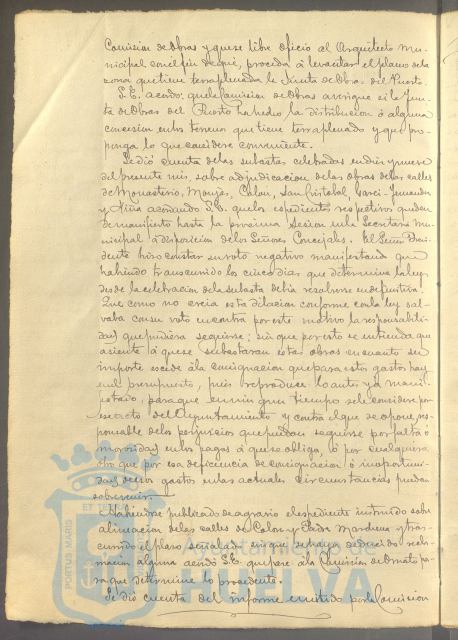 Comision de Obras y que se libre oficio al Arquitecto Mu-
nicipal con el fin de que, proceda á levantar el plano de la
zona que tiene terraplenada la Junta de Obras del Puerto.
S.E. acordó, que la Comision de Obras averigue si la Jun-
ta de Obras del Puerto ha hecho la distribucion ó alguna
concesion en los terrenos que tiene terraplenado y que pro-
ponga lo que considere conveniente.
Se dió cuenta de las subastas celebradas en diez y nueve
del presente mes, sobre adjudicacion de las obras de las calles
de Monasterio, Monjas, Colon, San Cristobal, Garci-Fernandez
y Niña acordando S.E. que los espedientes respectivos queden
de manifiesto hasta la proxima Sesion en la Secretaria Mu-
nicipal á disposicion de los Señores Concejales. El Señor Presi-
dente hizo constar su voto negativo manifestando que
habiendo transcurrido los cinco dias que determina la ley
des de la celebracion de la subasta debia resolverse en definitiva.
Que como no creia esta dilacion conforme con la ley sal-
vaba con su voto en contra por este motivo la responsabili-
dad que pudiera seguirse; sin que por esto se entienda que
asiente á que se subastaran estas obras en cuanto su
importe escede á la consignacion que para estos gastos hay
en el presupuesto, pues reproduce lo antes ya mani-
festado, para que en ningun tiempo se le considere por
escrito del Ayuntamiento y contra el que se opone, res-
ponsable de los perjuicios que puedan seguirse por falta ó
morosidad en los pagos á que se obliga, ó por cualquiera
otro que por esa deficiencia de consignacion ó inoportuni-
dad de esos gastos en las actuales circunstancias puedan
sobrevenir.
Habiendose publicado de agravio el espediente instruido sobre
alineacion de las calles de Colon y Padre Marchena y tras-
currido el plazo señalado sin que se haya aducido recla-
macion alguna acordó S.E. que pase á la Comision de Ornato pa-
ra que determine lo procedente.
Se dió cuenta del informe emitido por la Comision
PORTUS MARIS
ET TERRAE
Ayuntamiento de
HUELVA